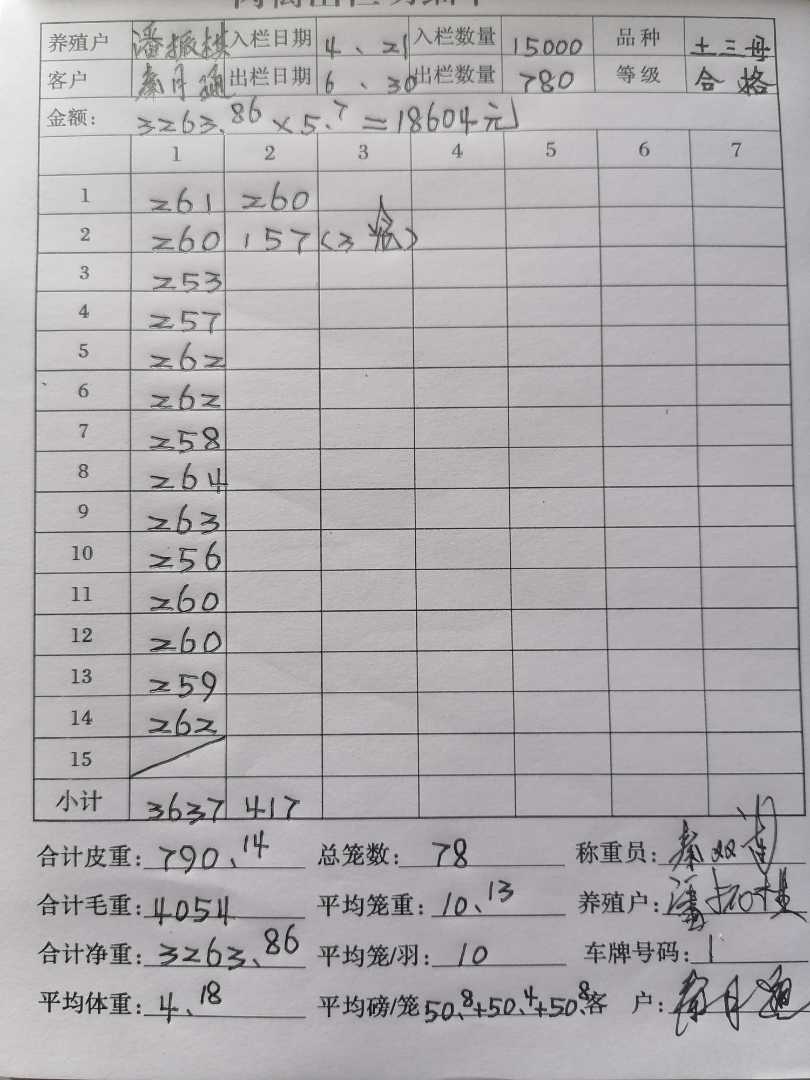 养殖户 潘振棋 入栏日期 4、21 入栏数量 15000 品种 土三母
客户 秦月 出栏日期 6、30 出栏数量 780 等级 合格
金额: 3263.86×5.7=18604元
1 2 3 4 5 6 7
1 261 260
2 260 157(3笼)
3 253
4 257
5 262
6 262
7 258
8 264
9 263
10 256
11 260
12 260
13 259
14 262
15
小计 3637 417
合计皮重: 790.14 总笼数: 78 称重员: 秦双
合计毛重: 4054 平均笼重: 10.13 养殖户: 潘
合计净重: 3263.86 平均笼/羽: 10 车牌号码: 1
平均体重: 4.18 平均磅/笼 50.8+50.4+50.8 客 户: